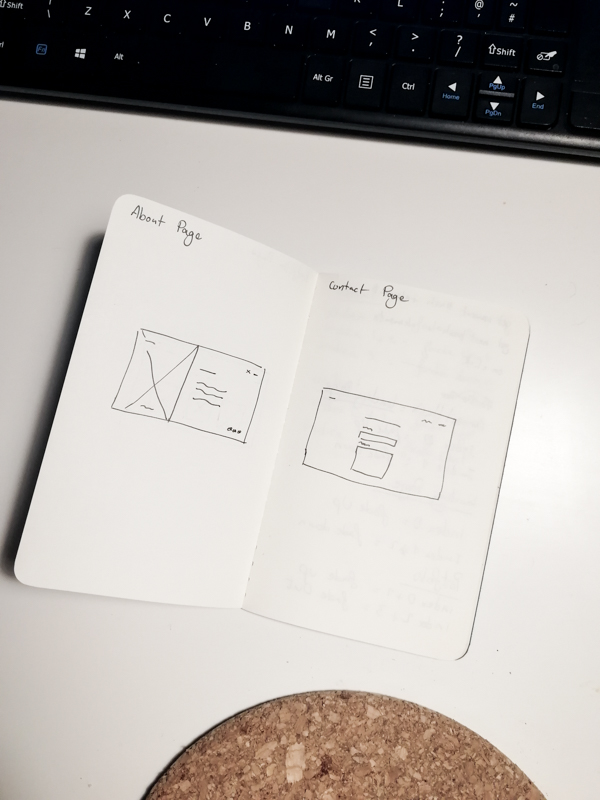 Shift
\
Z X C V B N M
<
,
>
.
?
/
Shift
Fn
Alt
Alt Gr
Ctrl
Home
PgUp
PgDn
End
L
;
@
~
#
About Page
Contact Page